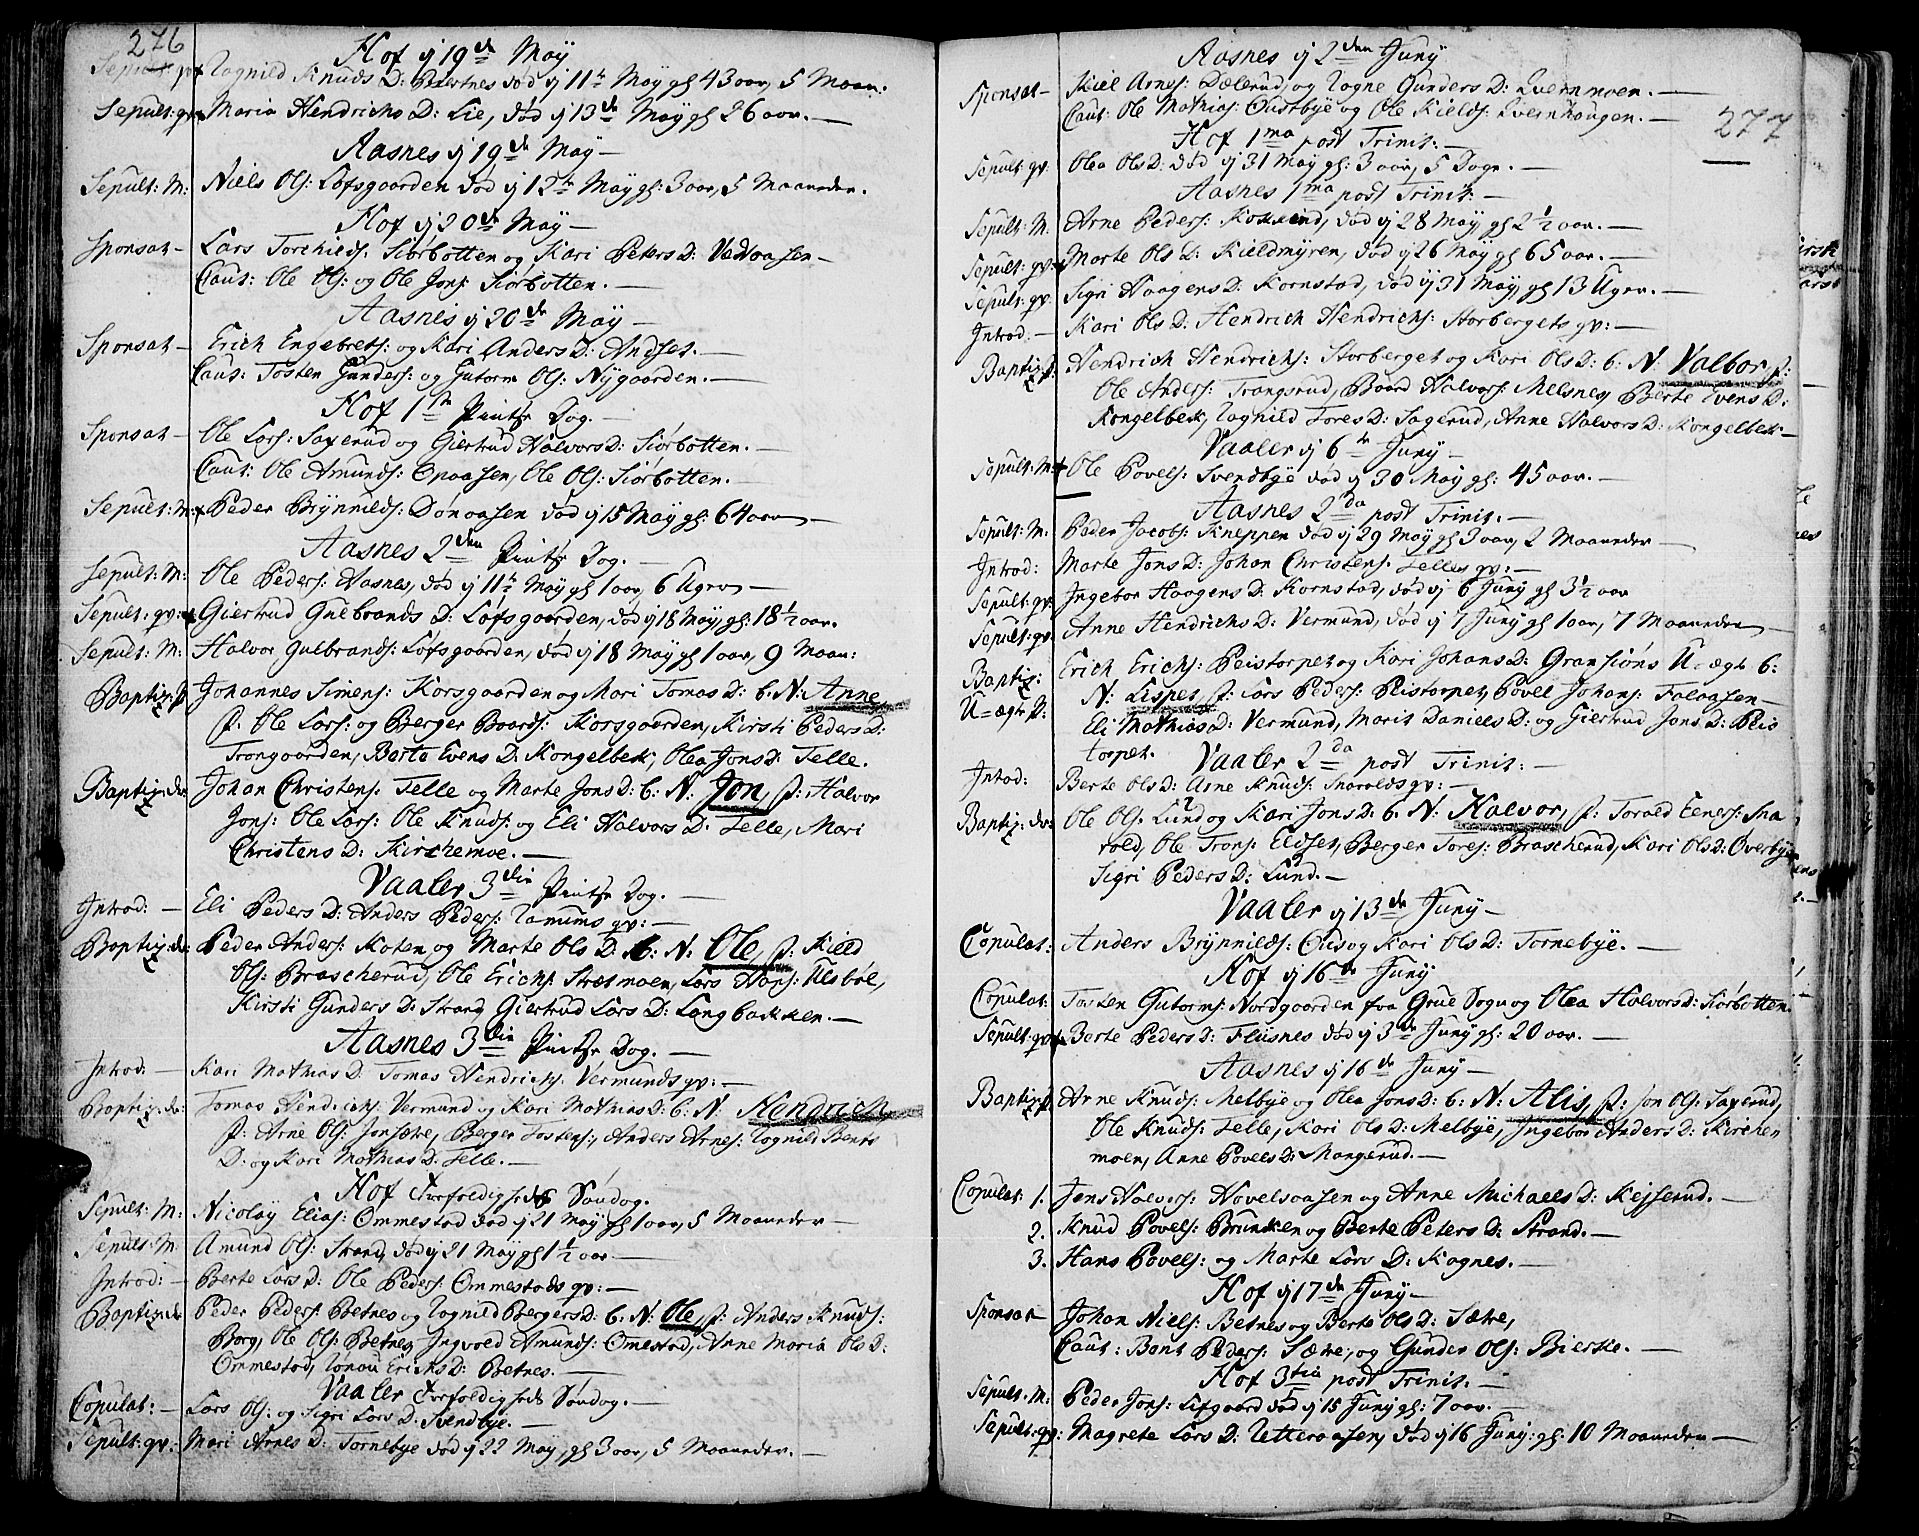 276
Hof ij 19de May
Sepult: qv Ragnild Knuds D: Betnes død ij 11te May gl 43 aar, 5 Maan.
Sepult: qv Maria Hendrichs D: Lie, død ij 13de May gl 26 aar. —
Aasnes ij 19de May —
Sepult: M: Niels Ols: Løfsgaarden død ij 12te May gl: 3 aar, 5 Maaneder.
Hof ij 20de May —
Sponsat — Lars Torchilds: Siørbotten og Kari Peters D: Vedvaasen —
Caut: Ole Ols: og Ole Jons: Siørbotten. —
Aasnes ij 20de May —
Sponsat — Erich Engebrets: og Kari Anders D: Andset. —
Caut: Tosten Gunders: og Gutorm Ols: Nygaarden. —
Hof 1ste Pintse Dag. —
Sponsat — Ole Lars: Saxerud og Giertrud Halvors D: Siørbotten. —
Caut: Ole Amunds: Opaasen, Ole Ols: Siørbotten. —
Sepult: M: Peder Brynnilds: Dønaasen død ij 15 May gl: 64 aar —
Aasnes 2den Pintse Dag. —
Sepult: M: Ole Peders: Aasnes, død ij 11te May gl 1 aar, 6 Uger —
Sepult: qv: Giertrud Gulbrands D: Løfsgaarden, død ij 18 May, gl: 18 ½ aar.
Sepult: M: Halvor Gulbrands: Løfsgaarden, død ij 18 May gl 1 aar, 9 Maan:
Baptiz: p Johannes Simens: Korsgaarden og Mari Tomas D: b: N: Anne
p: Ole Lars: og Berger Baards: Korsgaarden, Kirsti Peders D:
Trangaarden, Berte Evens D: Kongelbek, Olea Jons D: Telle.
Baptiz: dr: Johan Christens: Telle og Marte Jons D: b: N: Jon, p: Halvor
Jons: Ole Lars: Ole Knuds: og Eli Halvors D: Telle, Mari
Christens D: Kirchemoe. —
Vaaler 3die Pintse Dag. —
Introd: — Eli Peders D: Anders Peders: Ramums qv: —
Baptiz: dr: Peder Anders: Koten og Marte Ols D: b: N: Ole, p: Kield
Ols: Brascherud, Ole Erichs: Strætmoen, Lars Hans: Ulsbøl,
Kirsti Gunders D: Strand, Giertrud Lars D: Langbakken. —
Aasnes 3die Pintse Dag. —
Introd: — Kari Mathias D: Tomas Hendrichs: Vermunds qv: —
Baptiz: dr: Tomas Hendrichs: Vermund og Kari Mathias D: b: N: Hendrich
p: Arne Ols: Jonsætre, Berger Tostens:, Anders Arnes: Ragnild Bents
D: og Kari Mathias D: Telle. —
Hof Trefoldigheds Søndag.
Sepult: M: Nicolay Elias: Ommestad død ij 21 May gl 1 aar, 5 Maaneder —
Sepult: M Amund Ols: Strand, død ij 21 May gl 1 ½ aar —
Introd: — Berte Lars D: Ole Peders: Ommestads qv: —
Baptiz: dr Peder Peders: Betnes og Ragnild Bergers D: b: N: Ole, p: Anders Knuds:
Borg, Ole Ols: Betnes, Ingvold Amunds: Omestad, Anne Maria Ols D:
Ommestad, Rønau Erichs D: Betnes. —
Vaaler Trefoldigheds Søndag. —
Copulat: — Lars Ols: og Sigri Lars D: Svendbye. —
Sepult: qv: Mari Arnes D: Tornebye død ij 22 May, gl 3 aar, 5 Maaneder. —
277
Aasnes ij 2den Juny
Sponsat — Kiel Arnes: Dælerud, og Ragne Gunders D: Quernmoen. —
Caut: Ole Mathias: Oustbye og Ole Kields: Quernhaugen. —
Hof 1ma post Trinit: —
Sepult: qv: Olea Ols D: død ij 31 May gl: 3 aar, 5 Dage. —
Aasnes 1ma post Trinit: —
Sepult: M. Arne Peders: død ij 28 May, gl 2 ½ aar. —
Sepult: qv: Marte Ols D: Kieldmyren, død ij 26 May gl 65 aar. —
Sepult: qv. Sigri Haagens D: Kornstad, død ij 31 May, gl 13 Uger. —
Introd: — Kari Ols D: Hendrich Hendrichs: Storbergets qv: —
Baptiz: p: Hendrich Hendrichs: Storberget og Kari Ols D: b: N: Valbor, p:
Ole Anders: Trangsrud, Baard Halvors: Melsnes, Berte Evens D:
Kongelbek, Ragnild Tores D: Sagerud, Anne Halvors D: Kongelbek —
Vaaler ij 6te Juny —
Sepult: M: Ole Povels: Svendbye død ij 30 May gl: 45 aar. —
Aasnes 2da post Trinit. —
Sepult: M: Peder Jacobs: Kneppen død ij 29 May gl 3 aar, 2 Maaneder —
Introd: Marte Jons D: Johan Christens: Telles qv: —
Sepult: qv: Ingebor Haagens D: Kornstad, død ij 6 Juny gl 3 ½ aar
Sepult: qv: Anne Hendrichs D: Vermund, død ij 7 Juny gl 1 aar, 7 Maaneder —
Baptiz: Erich Erichs: Peistorpet og Kari Johans D: Gransiøns U=ægte b:
U=ægte p: N: Lispet, p: Lars Peders: Peistorpet, Povel Johans: Falaasen —
Eli Mathias D: Vermund, Marit Daniels D: og Giertrud Jons D: Peis
torpet. Vaaler 2da post Trinit: —
Introd: Berte Ols D: Arne Knuds: Snarolds qv: —
Baptiz: dr: Ole Ols: Lund og Kari Jons D: b: N: Halvor, p: Torald Eeners: Sna
rold, Ole Trons: Eidset, Berger Tores: Brascherud, Kari Ols D: Overbye
Sigri Peders D: Lund. —
Vaaler ij 13de Juny —
Copulat: Anders Brynnilds: Ous og Kari Ols D: Tornebye. —
Hof ij 16de Juny
Copulat: Tosten Gutorms: Nordgaarden fra Grue Sogn og Olea Halvors D: Siørbotten
Sepult: qv Berte Peders D: Flisnes død ij 3de Juny gl: 20 aar. —
Aasnes ij 16de Juny —
Baptiz: p Arne Knuds: Melbye og Olea Jons D: b: N: Alis, p: Jon Ols: Saxerud,
Ole Knuds: Telle, Kari Ols D: Melbye, Ingebor Anders D: Kirche
moen, Anne Povels D: Mangerud. —
Copulat: 1. Jens Halvors: Hovelsaasen og Anne Michaels D: Kejserud. —
2. Knud Povels: og Berte Peters D: Strand. —
3. Hans Povels: og Marte Lars D: Kagnes. —
Hof ij 17de Juny —
Sponsat Johan Niels: Betnes og Berte Ols D: Sætre,
Caut: Bent Peders: Sætre, og Gunder Ols: Bierke. —
Hof 3tia post Trinit. —
Sepult: M: Peder Jons: Lifgaard død ij 15 Juny gl: 7 aar. —
Sepult: qv: Magrete Lars D: Utteraasen, død ij 16 Juny: gl: 10 Maaneder —